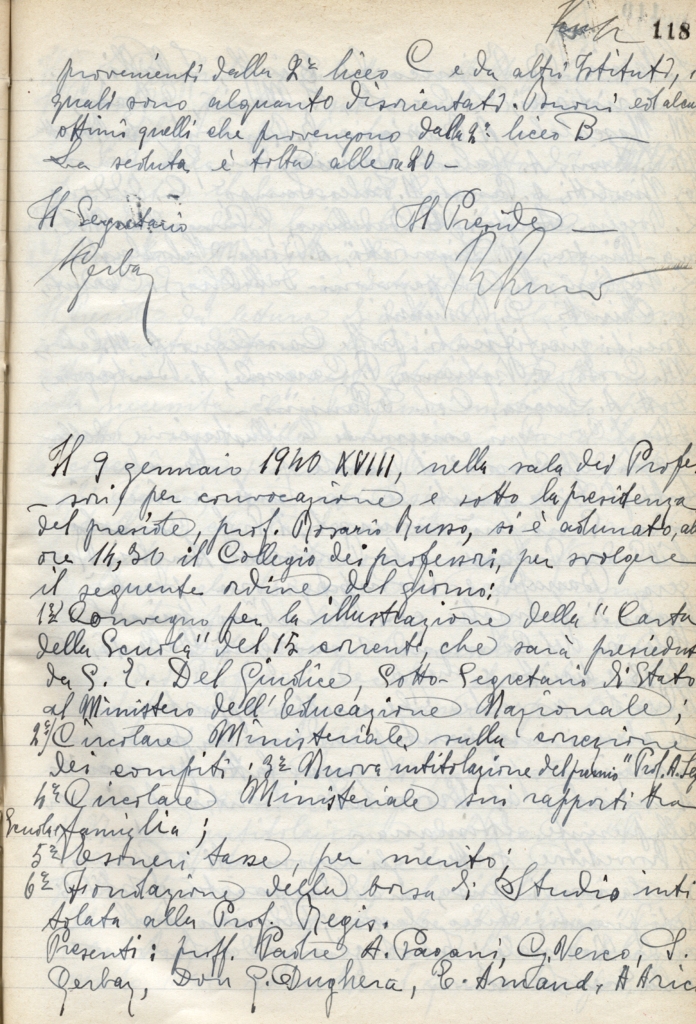 118
provenienti dalla 2ª liceo C e da altri Istituti, i
quali sono alquanto disorientati. Buoni ed alcu
ottimi quelli che provengono dalla 2ª liceo B —
La seduta è tolta alle 20 —
Il Segretario Il Preside —
Gerbaz
Il 9 gennaio 1940 XVIII, nella sala dei Profes
- sori, per convocazione e sotto la presidenza
del preside, prof. Rosario Russo, si è adunato, al
ore 14,30 il Collegio dei professori, per svolgere
il seguente ordine del giorno:
1º Convegno per la illustrazione della "Carta
della Scuola" del 15 corrente, che sarà presiedut
da S. E. Del Giudice, Sotto-Segretario di Stato
al Ministero dell'Educazione Nazionale;
2º Circolare Ministeriale sulla correzione
dei compiti; 3º Nuova intitolazione del premio "Prof. A.
4º Circolare Ministeriale sui rapporti tra
Scuola famiglia;
5º Esoneri tasse, per merito;
6º Fondazione della borsa di Studio inti
tolata alla Prof. Regis.
Presenti: proff. Padre A. Pagani, G. Verco,
Gerbaz, Don G. Dughera, E. Amand, A Aric